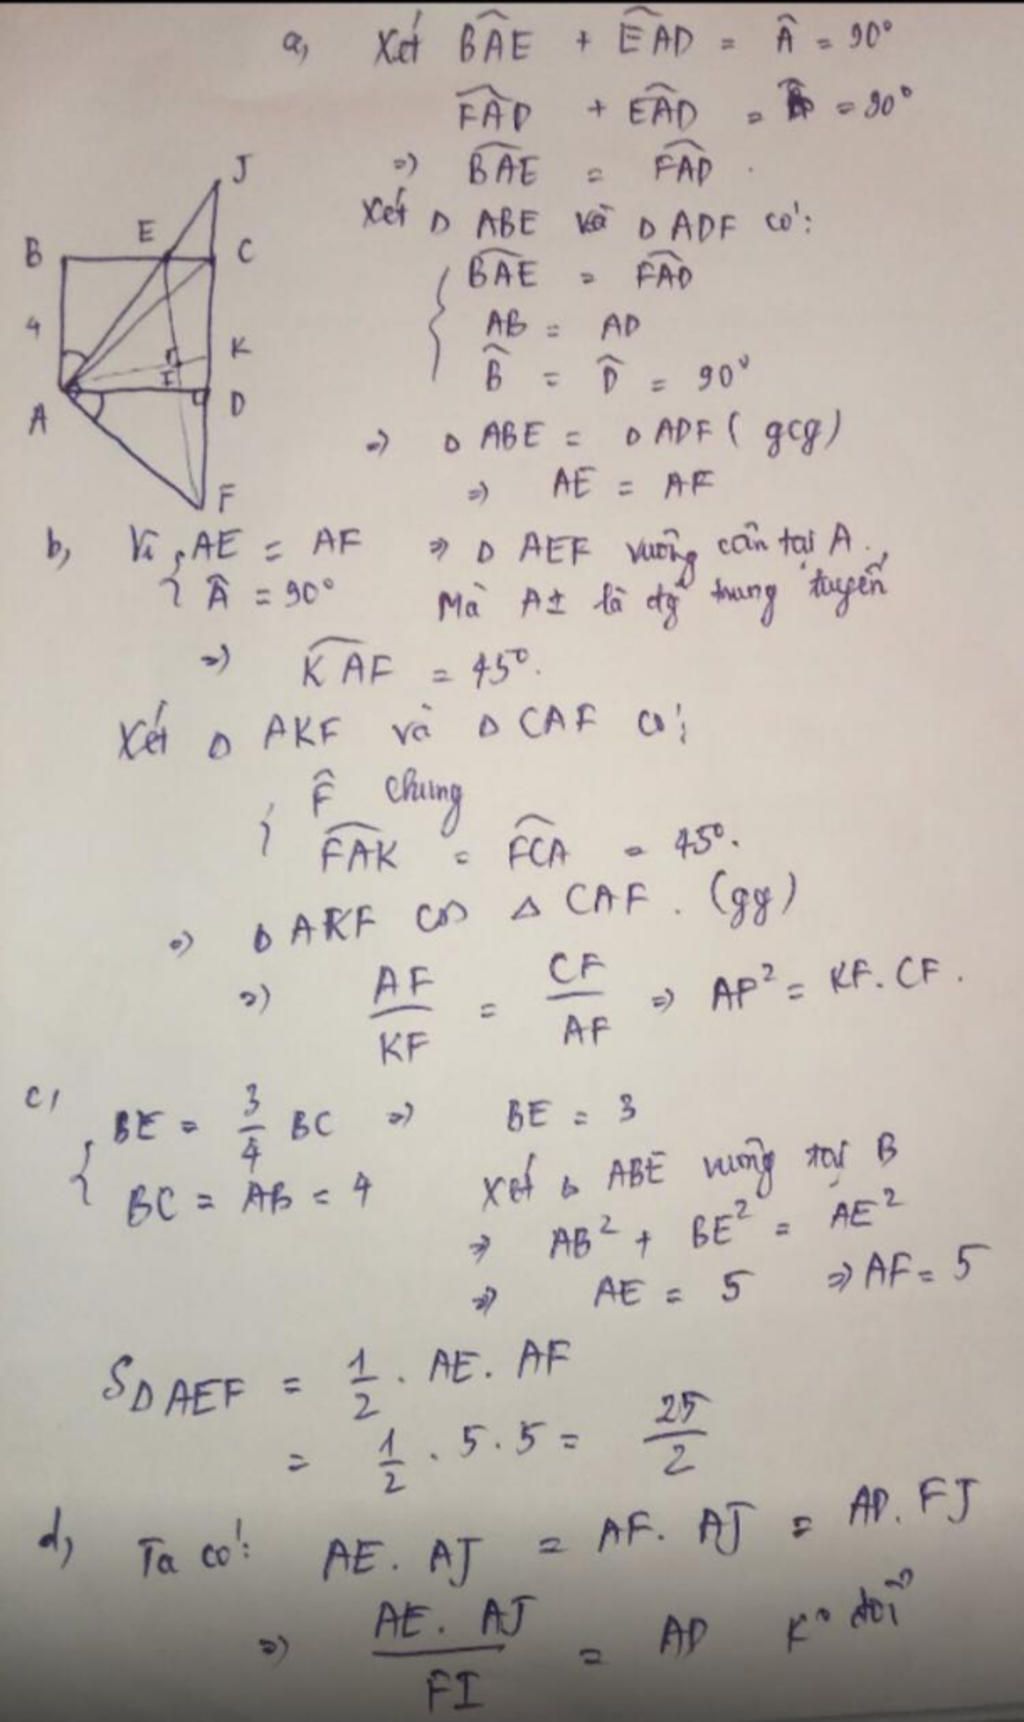 a, Xét BÂE + EÂD = Â = 90°
FÂD + EÂD = = 90°
=> BÂE = FÂD.
J
B E C
4 K
I
A D
F
Xét Δ ABE và Δ ADF có:
BÂE = FÂD
AB = AD
B̂ = D̂ = 90°
=> Δ ABE = Δ ADF (gcg)
=> AE = AF
b, Vì AE = AF => Δ AEF vuông cân tại A.
Â = 90° Mà AI là đg trung tuyến
=> KÂF = 45°.
Xét Δ AKF và Δ CAF có:
F̂ chung
FÂK = FĈA = 45°.
=> Δ AKF ∽ Δ CAF. (gg)
=> AF/KF = CF/AF => AF² = KF. CF.
c, BE = 3/4 BC => BE = 3
BC = AB = 4 Xét Δ ABE vuông tại B
=> AB² + BE² = AE²
=> AE = 5 => AF = 5
SΔAEF = 1/2 . AE. AF
= 1/2 . 5. 5 = 25/2
d, Ta có: AE. AJ = AF. AJ = AD. FJ
=> AE. AJ/FI = AD K° đổi